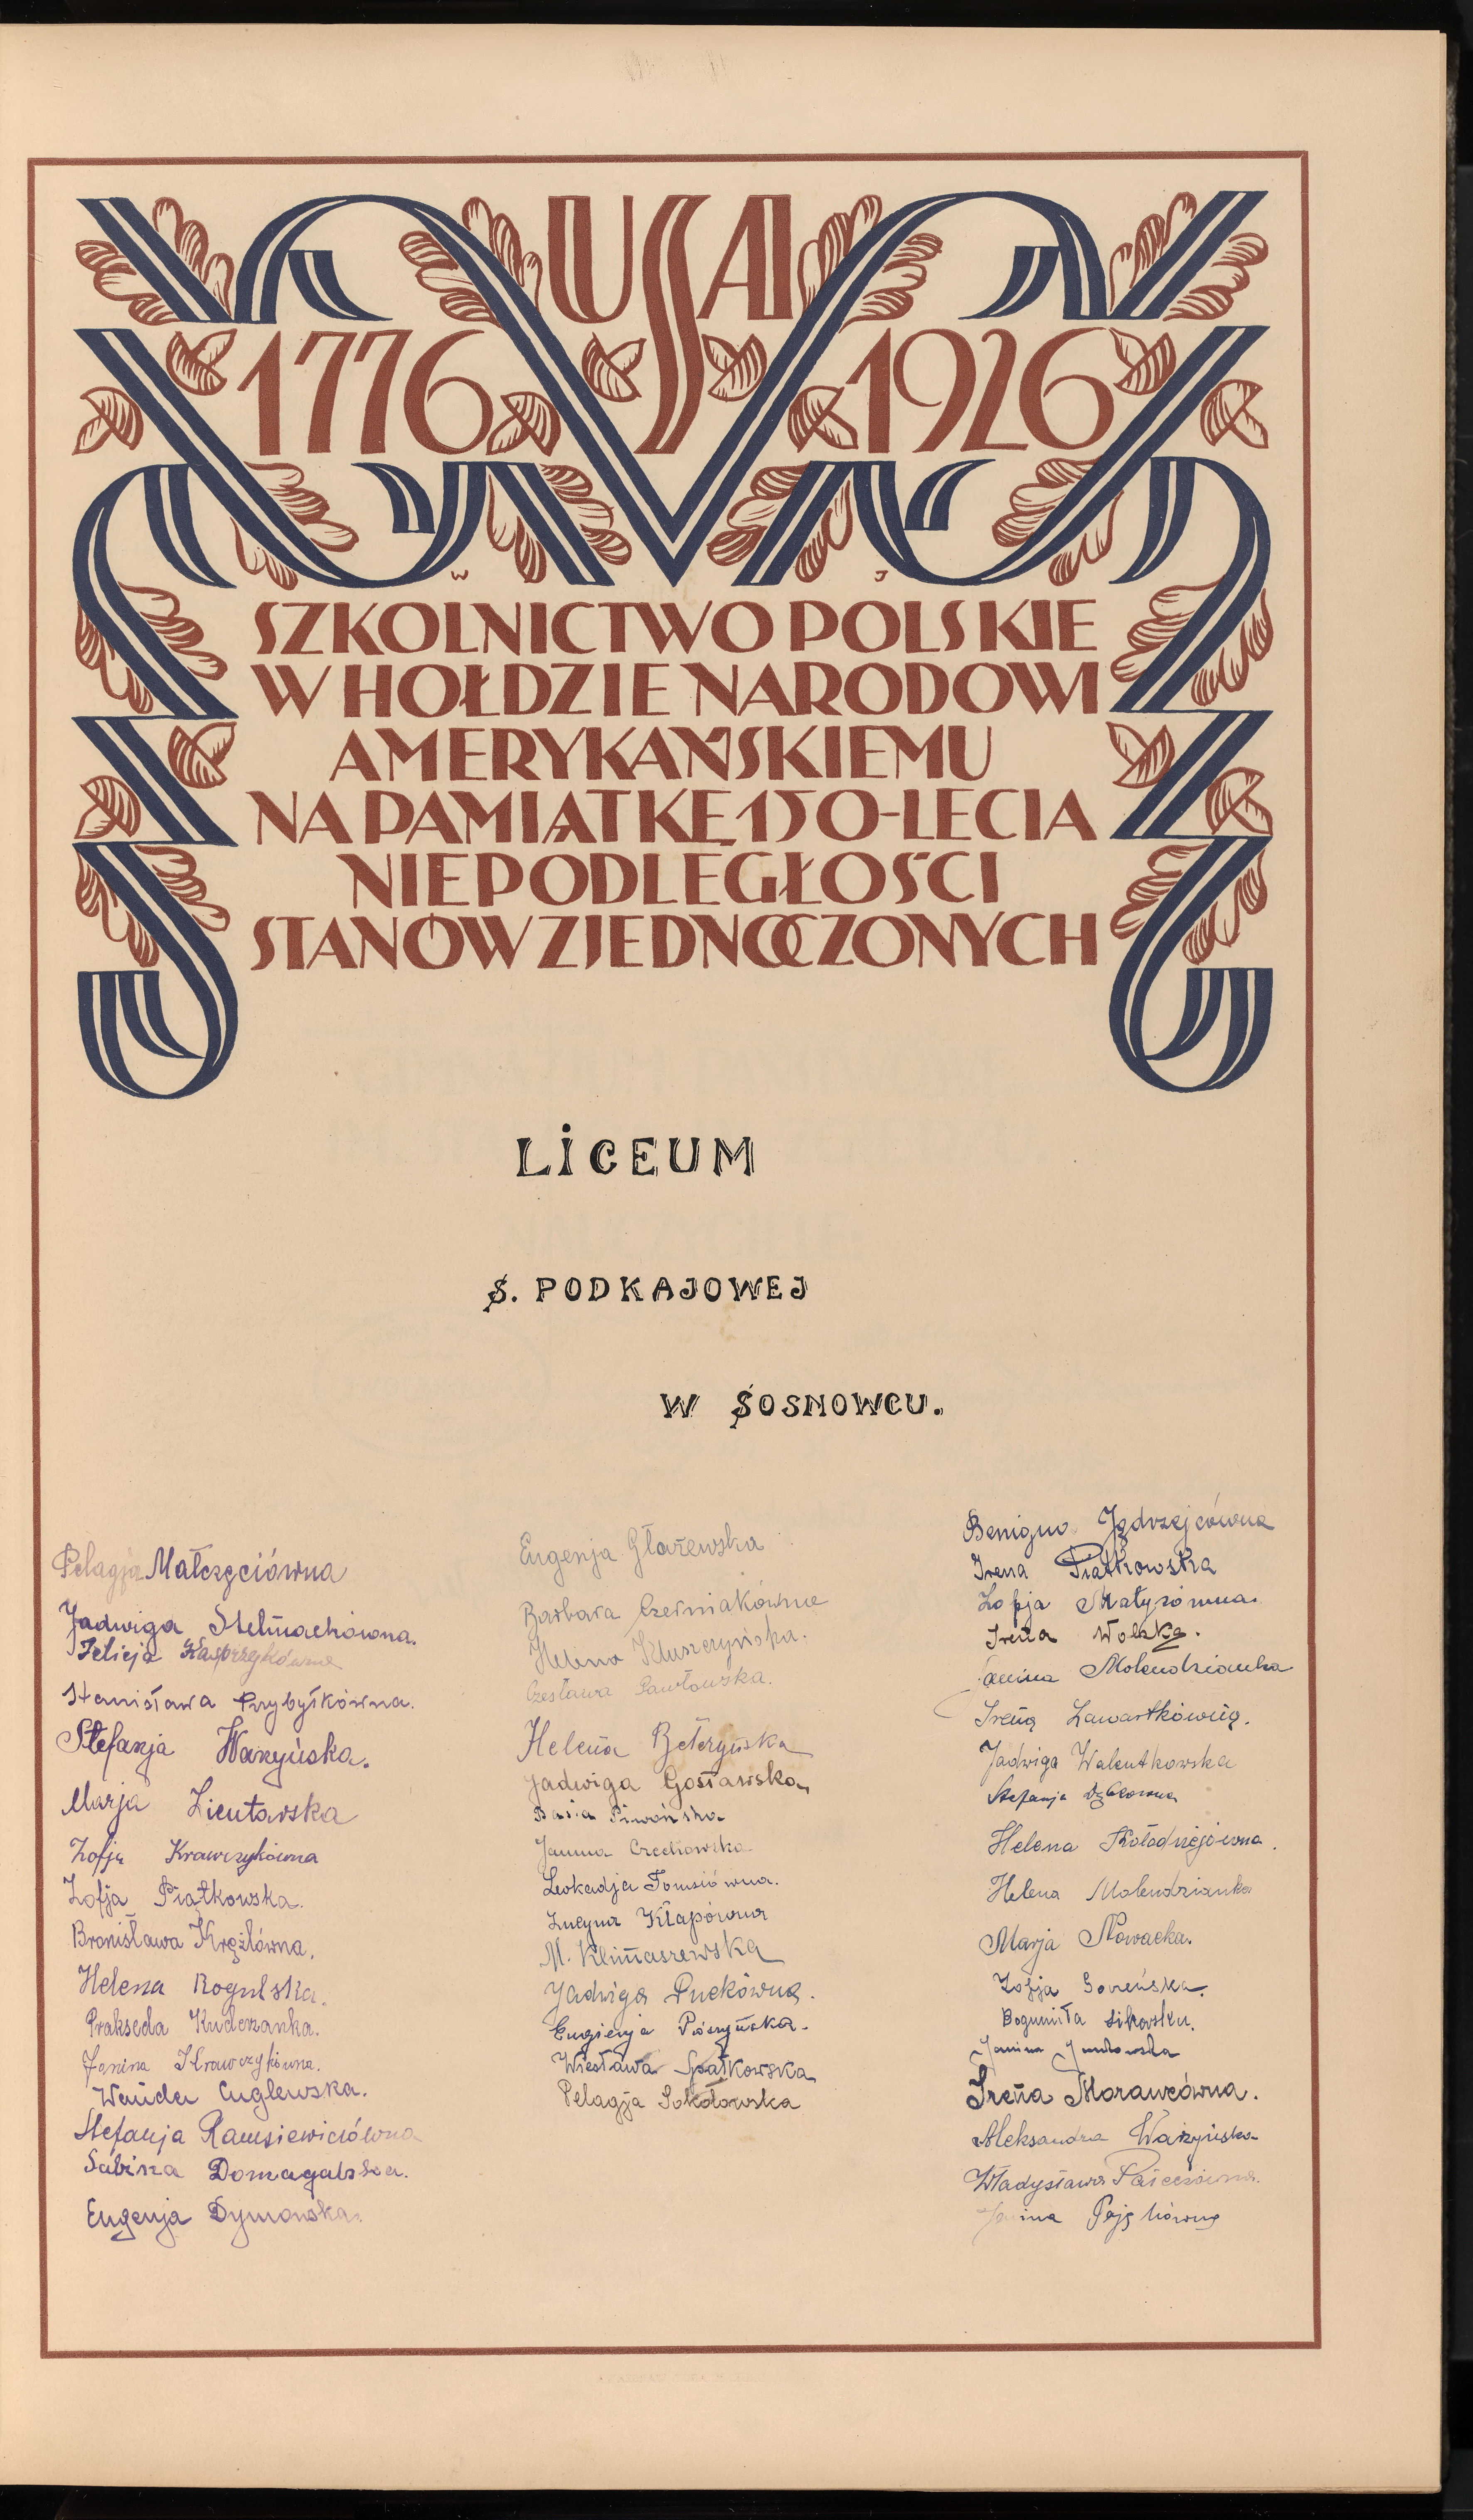 USA
1776 1926
W J
SZKOLNICTWO POLSKIE
W HOŁDZIE NARODOWI
AMERYKAŃSKIEMU
NA PAMIĄTKĘ 150-LECIA
NIEPODLEGŁOŚCI
STANÓW ZJEDNOCZONYCH
LICEUM
S. PODKAJOWEJ
W SOSNOWCU.
Pelagja Małczęciówna
Jadwiga Stelmachówna.
Felicja Kasprzykówna
Stanisława Przybyłkówna.
Stefanja Warzyńska.
Marja Zientarska
Zofja Krawczykówna
Zofja Piątkowska.
Bronisława Kręźlówna.
Helena Rogulska.
Prakseda Kuderzanka.
Janina Krawczykówna.
Wanda Cuglewska.
Stefanja
Sabina Domagalska.
Eugenja Dymowska.
Eugenja Głażewska
Barbara Czerniakówna
Helena Kluszczyńska.
Czesława Pawłowska.
Helena
Jadwiga Gosławska
Basia Piwońska
Janina Czechowska
Leokadja Tomsiówna.
Lucyna Kłapówna
M. Klimaszewska
Jadwiga Puckówna.
Eugienja
Wiesława Spałkowska
Pelagja Sokołowska
Benigna Jędrzejcówna
Irena Piątkowska
Zofja Matysówna.
Irena Wolska.
Janina Molendzianka
Irena Zawartkówna.
Jadwiga Walentkowska
Stefanja
Helena Kołodziejówna.
Helena Molendzianka
Marja Nowacka.
Zofja
Bogumiła Sikorska.
Janina
Irena Morawcówna.
Aleksandra Warzyńska
Władysława
Janina